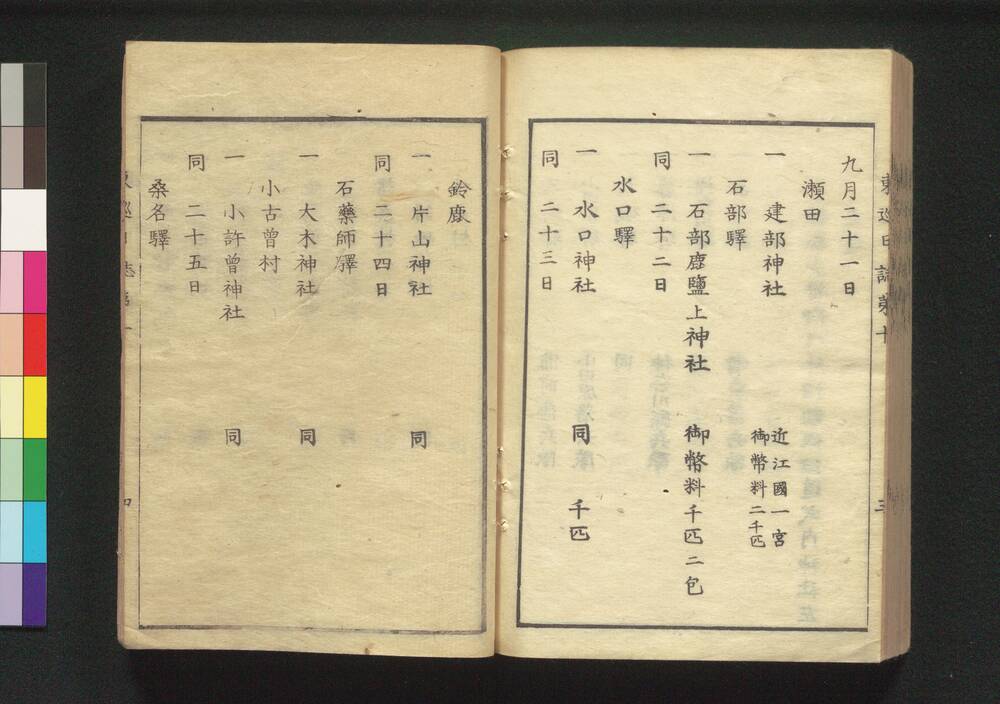 東巡日誌第十
三
九月二十一日
瀬田
一 建部神社 近江國一宮
御幣料二千匹
石部驛
一 石部鹿鹽上神社 御幣料千匹二包
同 二十二日
水口驛
一 水口神社 同 千匹
同 二十三日
鈴鹿
一 片山神社 同
同 二十四日
石藥師驛
一 大木神社 同
小古曽村
一 小許曽神社 同
同 二十五日
桑名驛
四